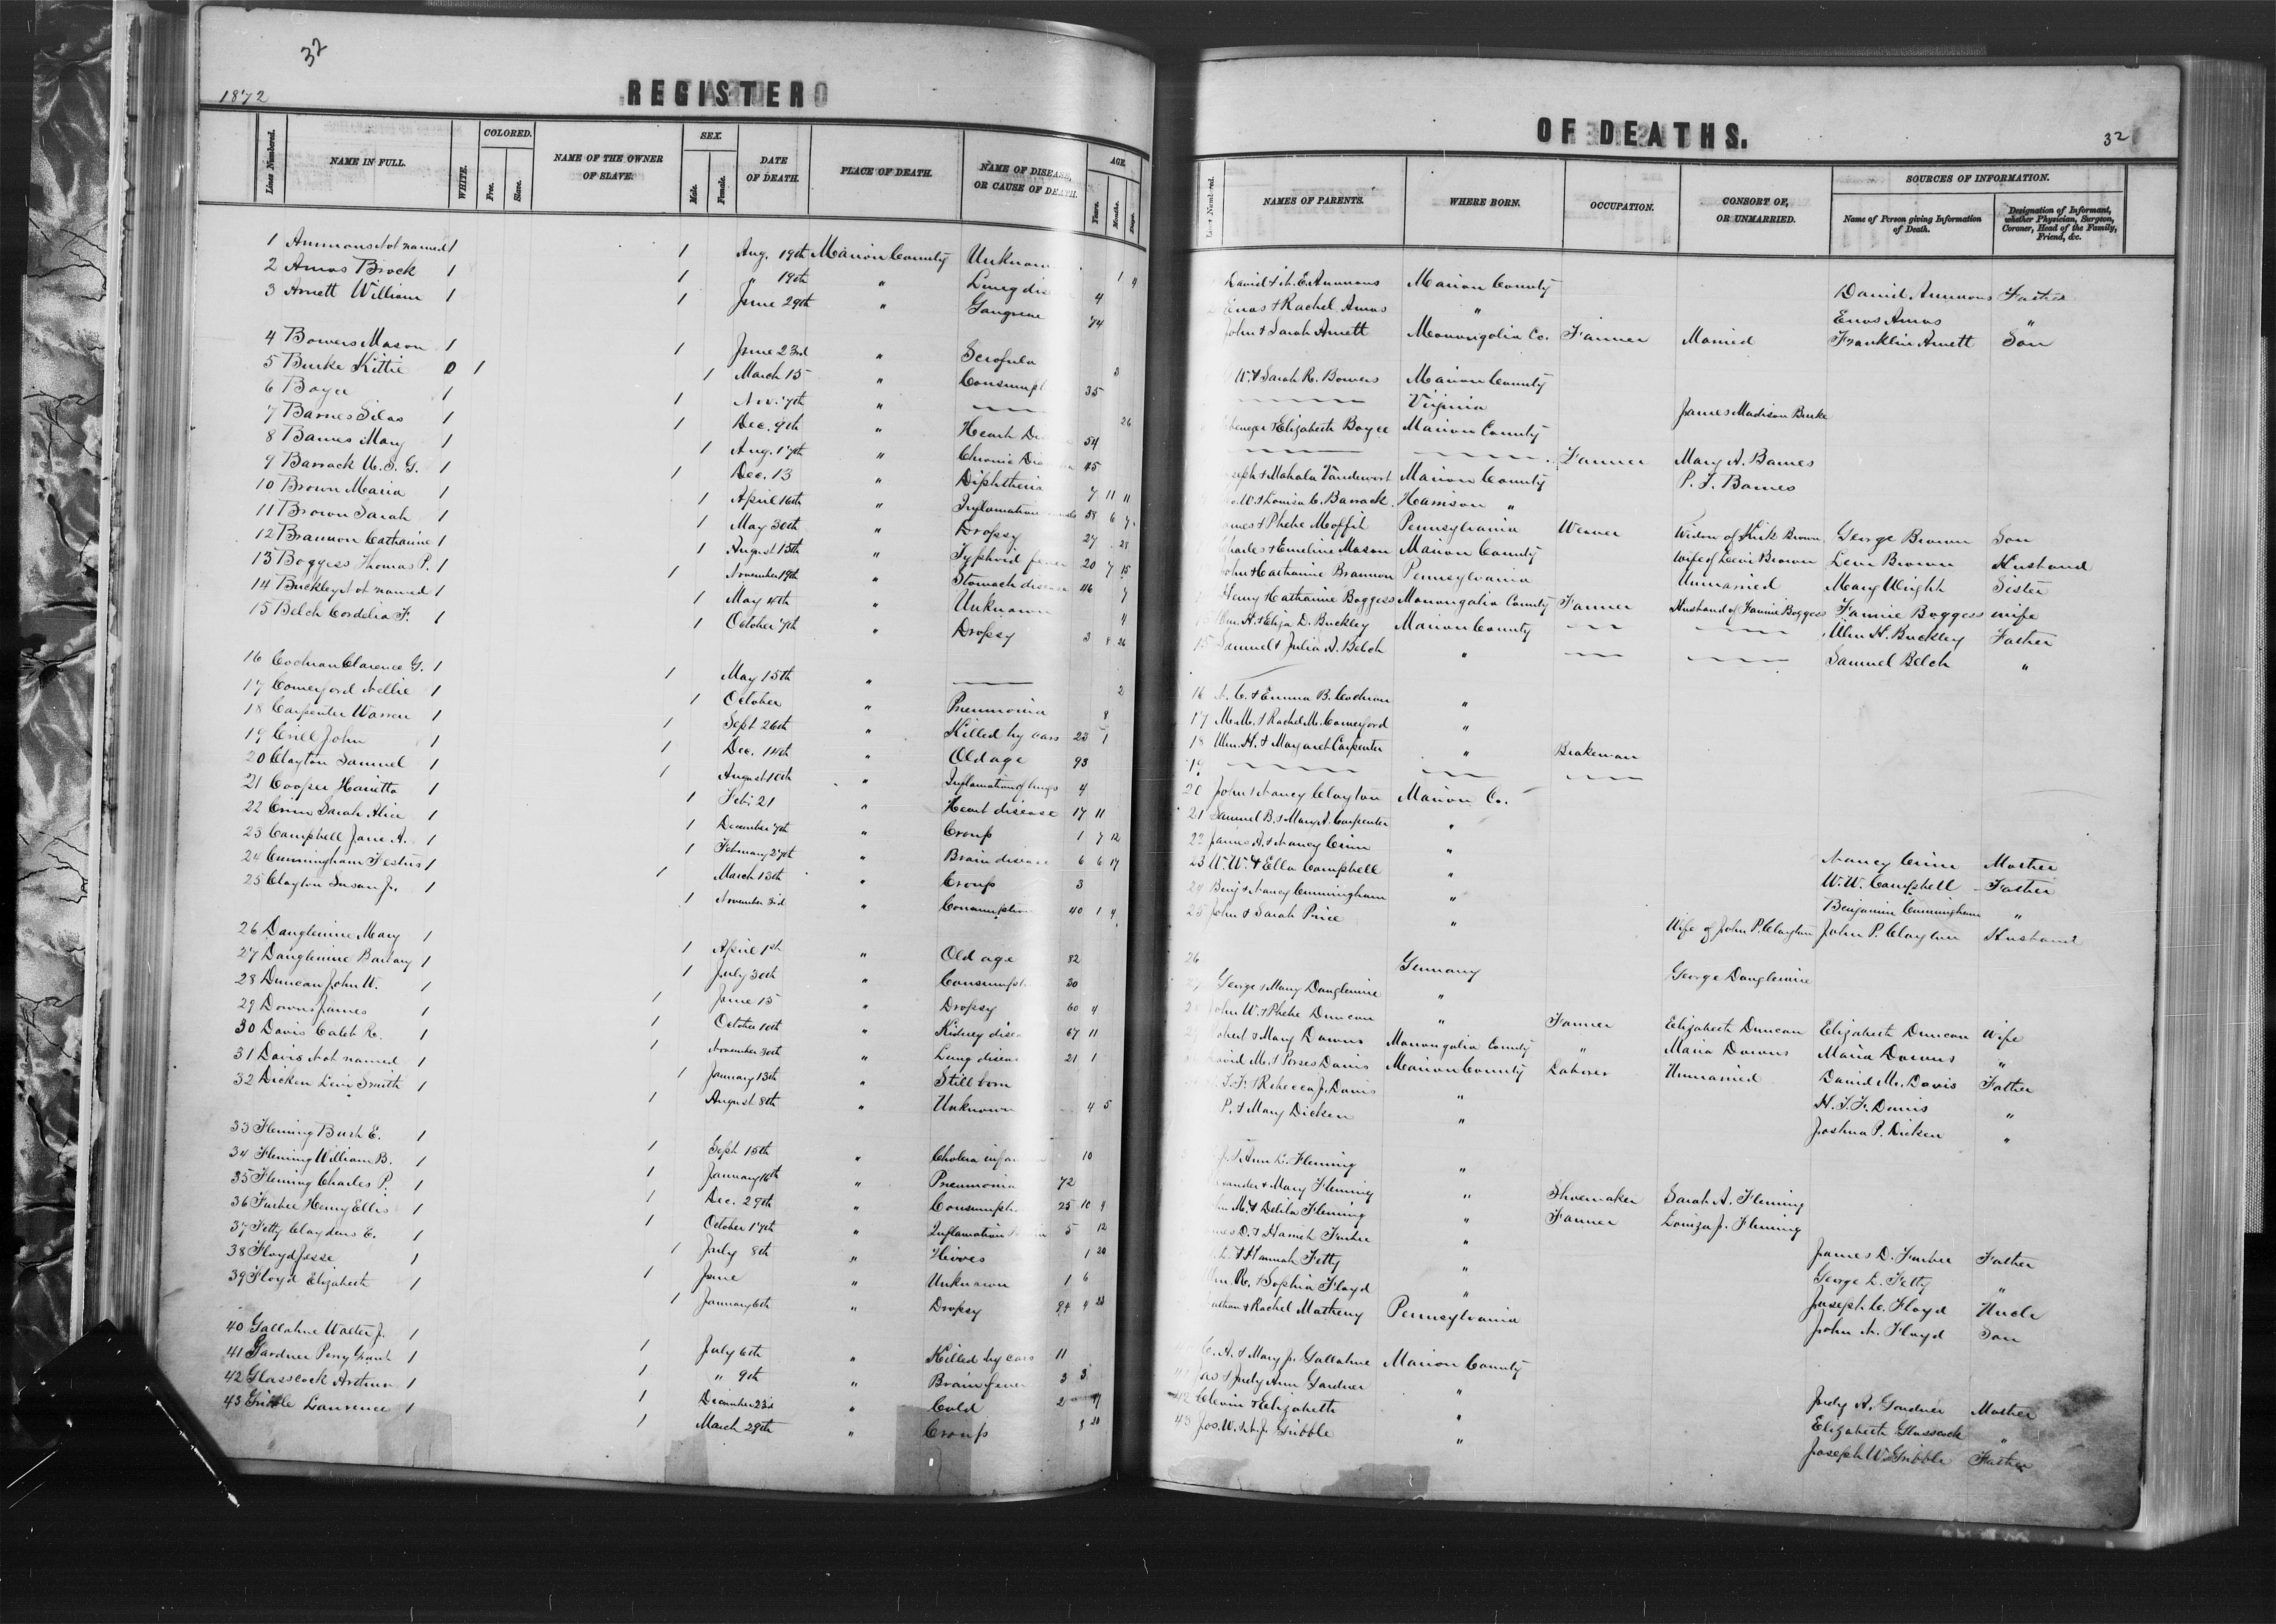 32
1872
REGISTER O
Lines Numbered. NAME IN FULL. WHITE. COLORED. Free. Slave. NAME OF THE OWNER OF SLAVE. SEX. Male. Female. DATE OF DEATH. PLACE OF DEATH. NAME OF DISEASE, OR CAUSE OF DEATH. AGE. Years. Months. Days.
1 Ammons Not named 1 1 Aug. 19th Marion County Unknown 1 4
2 Amos Brock 1 1 " 19th " Lung dis 4
3 Arnett William 1 1 June 29th " Gangrene 74
4 Bowers Mason 1 1 June 23rd " Scrofula 3
5 Burke Kittie 0 1 1 March 15 " Consumpt 35
6 Boyce 1 1 Nov. 7th " 26
7 Barnes Silas 1 1 Dec. 9th " Heart D 54
8 Barnes Mary 1 1 Aug. 17th " Chronic Di 45
9 Barrack U. S. G. 1 1 Dec. 13 " Diphtheria 7 11 11
10 Brown Maria 1 1 April 16th " Inflamation 58 6 7
11 Brown Sarah 1 1 May 30th " Dropsy 27 21
12 Brannon Catharine 1 1 August 15th " Typhoid fever 20 7 15
13 Boggess Thomas P. 1 1 November 19th " Stomach disease 46 7
14 Buckley Not named 1 1 May 4th " Unknown 4
15 Belch Cordelia F. 1 1 October 7th " Dropsy 3 8 26
16 Cochran Clarence G. 1 1 May 15th " 2
17 Comerford Nellie 1 1 October " Pneumonia 8
18 Carpenter Warren 1 1 Sept 26th " Killed by cars 23 1
19 Crell John 1 1 Dec. 14th " Old age 93
20 Clayton Samuel 1 1 August 10th " Inflamation of lungs 4
21 Cooper Harietta 1 1 Feb. 21 " Heart disease 17 11
22 Crim Sarah Alice 1 1 December 7th " Croup 1 7 12
23 Campbell Jane A. 1 1 February 27th " Brain disease 6 6 17
24 Cunningham Festus 1 1 March 13th " Croup 3
25 Clayton Susan J. 1 1 November 3rd " Consumption 40 1 4
26 Danglemire Mary 1 1 April 1st " Old age 82
27 Danglemire Barbary 1 1 July 30th " Consumpt 30
28 Duncan John W. 1 1 June 15 " Dropsy 60 4
29 Downs James 1 1 October 10th " Kidney disea 67 11
30 Davis Caleb R. 1 1 November 30th " Lung diseas 21 1
31 Davis Not named 1 1 January 13th " Still born
32 Dicken Levi Smith 1 1 August 8th " Unknown 4 5
33 Fleming Bush E. 1 1 Sept 15th " Cholera infan 10
34 Fleming William B. 1 1 January 16th " Pneumonia 72
35 Fleming Charles P. 1 1 Dec. 29th " Consumption 25 10 9
36 Furbee Henry Ellis 1 1 October 17th " Inflamation 5 12
37 Fetty Claydens E. 1 1 July 8th " Hives 1 20
38 Floyd Jesse 1 1 June " Unknown 1 6
39 Floyd Elizabeth 1 1 January 6th " Dropsy 94 4 23
40 Gallahue Walter J. 1 1 July 6th " Killed by cars 11
41 Gardner Perry Grant 1 1 " 9th " Brain fever 3 3
42 Glasscock Arthur 1 1 December 23rd " Cold 2
43 Gribble Laurence 1 1 March 29th " Croup 8 20
OF DEATHS.
32
NAMES OF PARENTS. WHERE BORN. OCCUPATION. CONSORT OF, OR UNMARRIED. SOURCES OF INFORMATION. Name of Person giving Information of Death. Designation of Informant, whether Physician, Surgeon, Coroner, Head of the Family, Friend, &c.
David & E. Ammons Marion County David Ammons Father
Enos & Rachel Amos " Enos Amos "
John & Sarah Arnett Monongalia Co. Farmer Married Franklin Arnett Son
W. & Sarah R. Bowers Marion County
Virginia James Madison Burke
Ebenezer & Elizabeth Boyce Marion County
Farmer Mary A. Barnes
Joseph & Mahala Vandervort Marion County P. T. Barnes
W. & Louisa C. Barrack Harrison "
James & Phebe Moffit Pennsylvania Weaver Widow of Kirk Brown George Brown Son
Charles & Emeline Mason Marion County Wife of Levi Brown Levi Brown Husband
John & Catharine Brannon Pennsylvania Unmarried Mary Wright Sister
Henry & Catharine Boggess Monongalia County Farmer Husband of Fannie Boggess Fannie Boggess wife
Wm. H. & Eliza D. Buckley Marion County Wm H. Buckley Father
15 Samuel & Julia A. Belch " Samuel Belch "
16 N. C. & Emma B. Cochran "
17 M. M. & Rachel M. Comerford "
18 Wm. H. & Margaret Carpenter " Brakeman
19
20 John & Nancy Clayton Marion Co.
21 Samuel B. & Mary A. Carpenter "
22 James A. & Nancy Crim " Nancy Crim Mother
23 W. W. & Ella Campbell " W. W. Campbell Father
24 Benj & Nancy Cunningham " Benjamin Cunningham "
25 John & Sarah Price " Wife of John P. Clayton John P. Clayton Husband
26 Germany George Danglemire
27 George & Mary Danglemire "
28 John W. & Phebe Duncan " Farmer Elizabeth Duncan Elizabeth Duncan Wife
29 Robert & Mary Downs Monongalia County " Maria Downs Maria Downs "
David M. & Perses Davis Marion County Laborer Unmarried David M. Davis Father
T. F. & Rebecca J. Davis " H. T. F. Davis "
P. & Mary Dicken " Joshua P. Dicken "
& Ann L. Fleming "
Alexander & Mary Fleming " Shoemaker Sarah A. Fleming
John M. & Delila Fleming " Farmer Louiza J. Fleming
James D. & Hannah Furbee " James D. Furbee Father
L. & Hannah Fetty " George L. Fetty "
Wm. R. & Sophia Floyd " Joseph C. Floyd Uncle
Nathan & Rachel Matheny Pennsylvania John N. Floyd Son
C. A. & Mary J. Gallahue Marion County
Jas & Judy Ann Gardner " Judy A. Gardner Mother
42 & Elizabeth " Elizabeth Glasscock "
43 Jos. W. & J. Gribble " Joseph W. Gribble Father